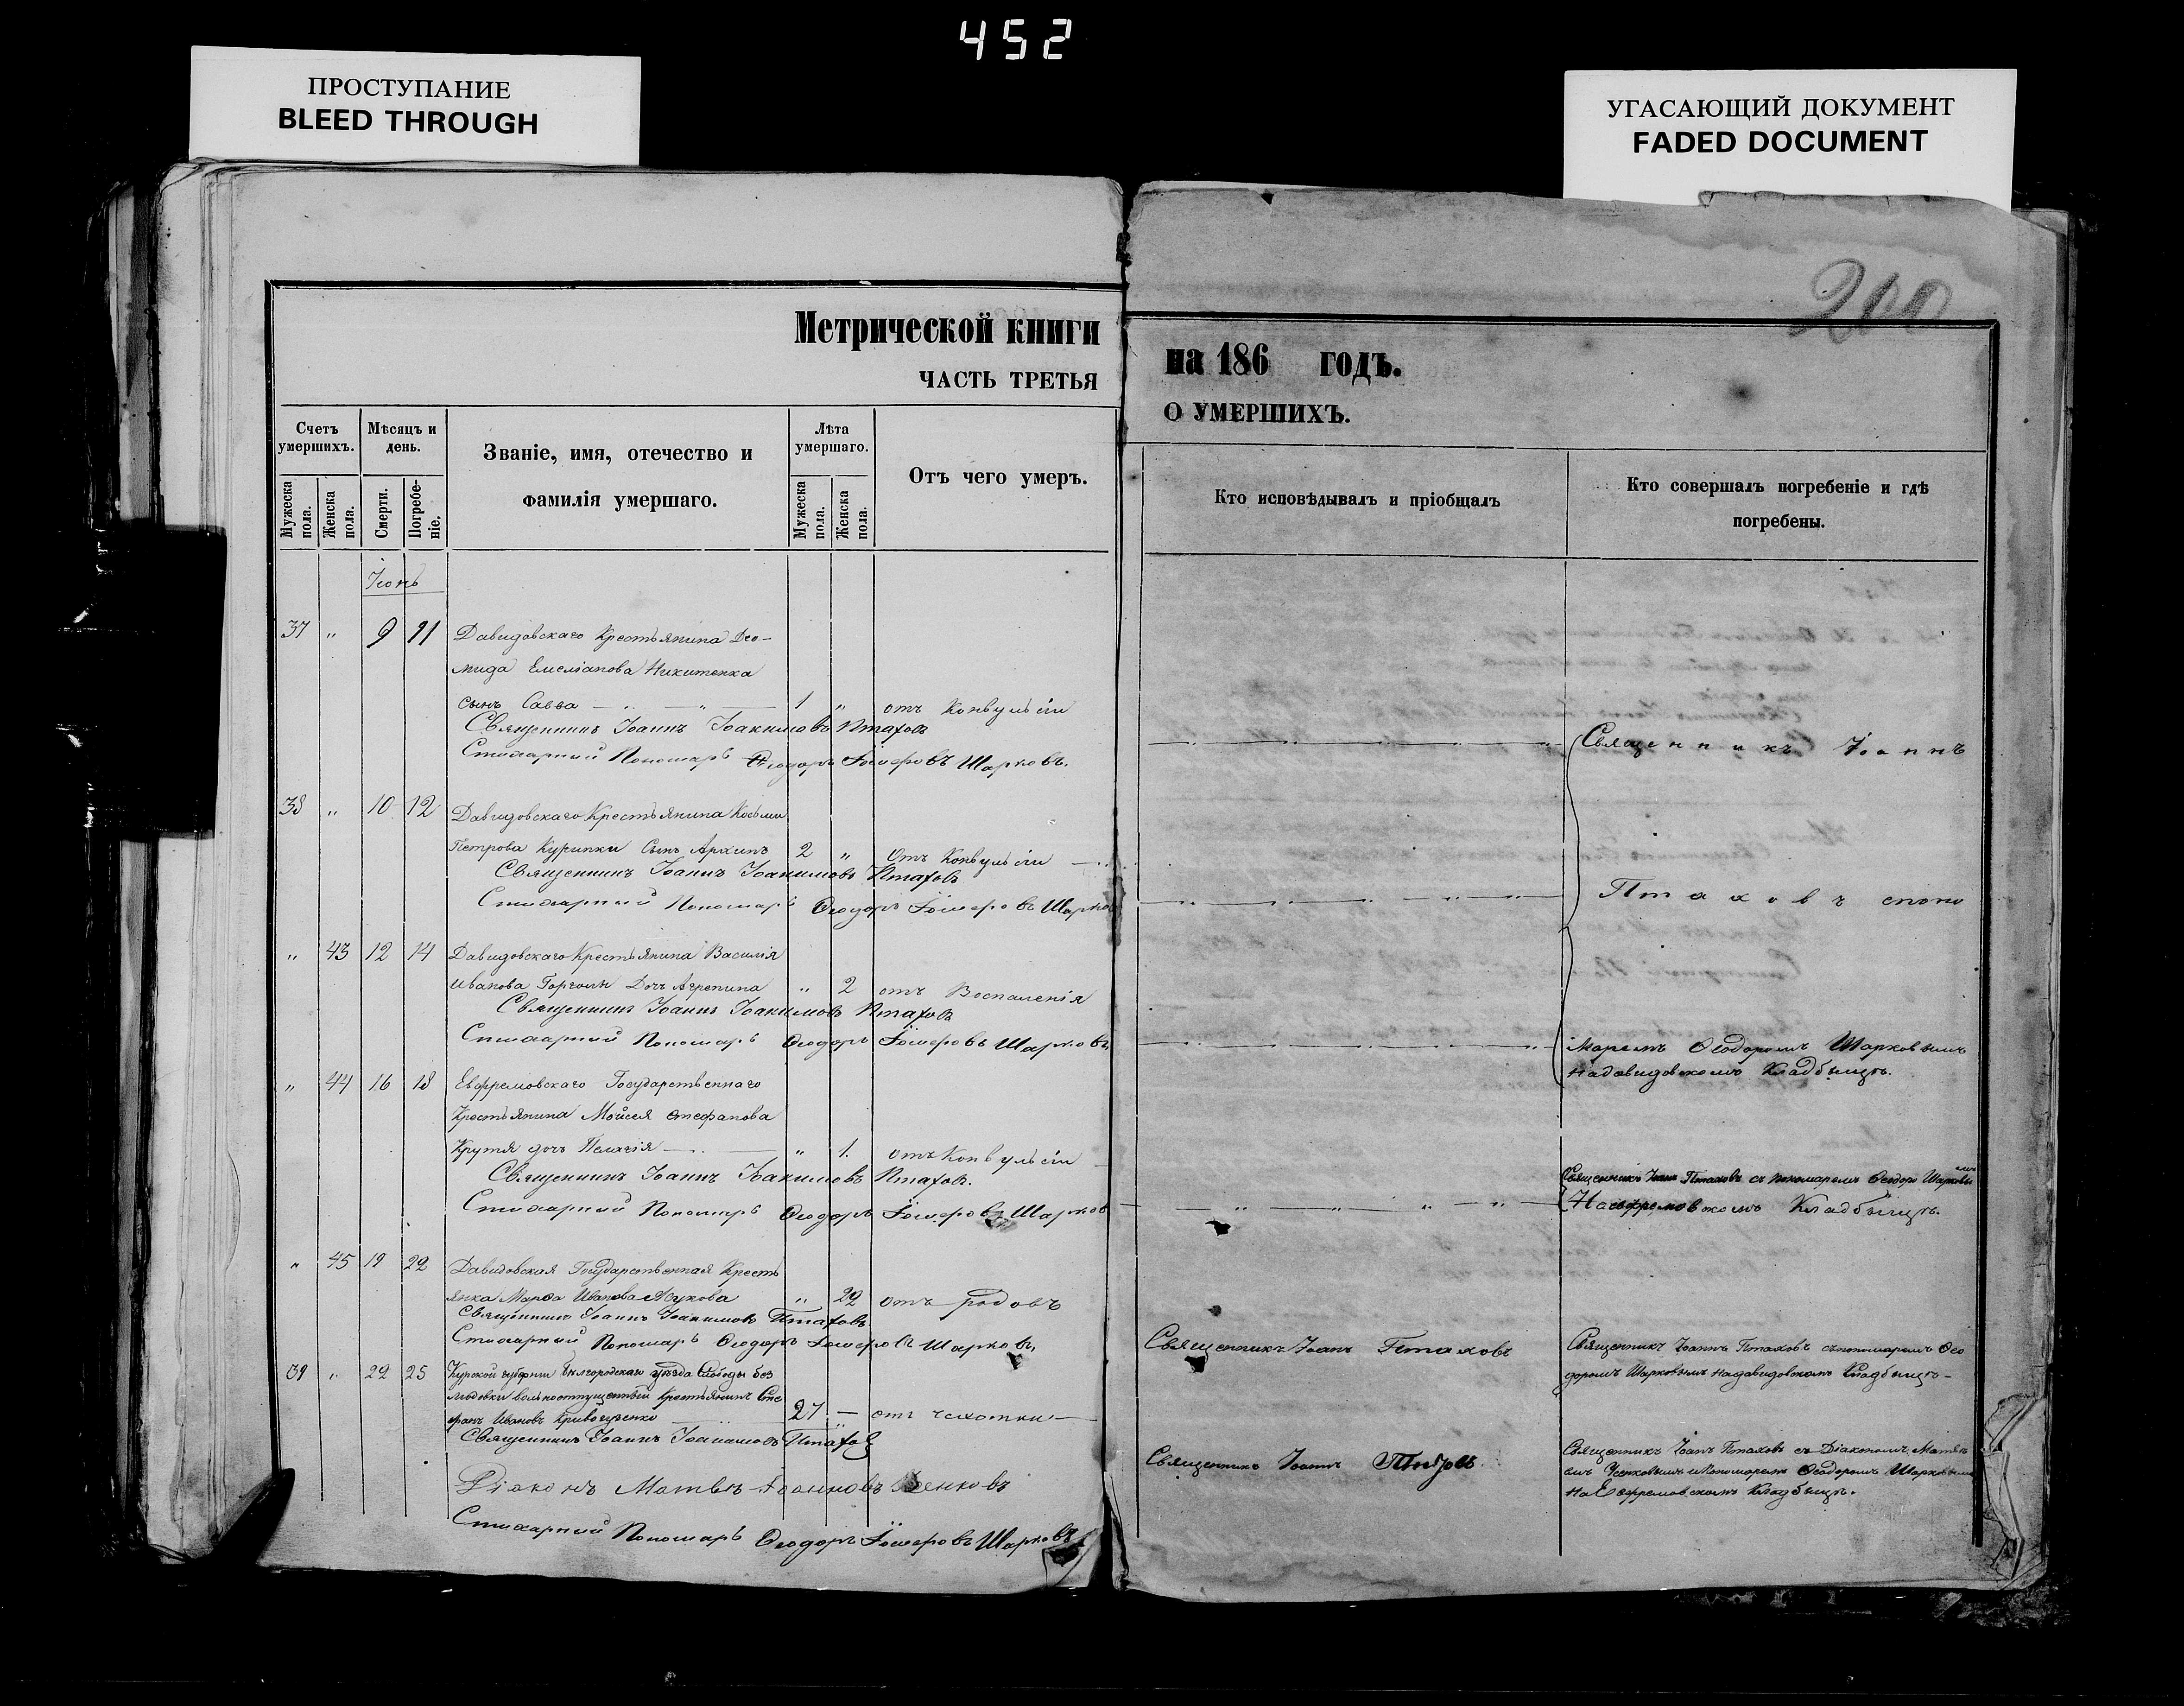 452
ПРОСТУПАНИЕ
BLEED THROUGH
УГАСАЮЩИЙ ДОКУМЕНТ
FADED DOCUMENT
200
Метрической книги
на 186 годъ.
ЧАСТЬ ТРЕТЬЯ
О УМЕРШИХЪ.
Счетъ умершихъ.
Мужеска пола.
Женска пола.
Мѣсяцъ и день.
Смерти.
Погребе-
ніе.
Званіе, имя, отечество и
фамилія умершаго.
Лѣта умершаго.
Мужеска пола.
Женска пола.
Отъ чего умеръ.
Кто исповѣдывалъ и пріобщалъ
Кто совершалъ погребеніе и гдѣ
погребены.
Іюнь
37 „ 9 11 Давидовскаго Крестьянина Діо-
мида Емеліанова Никитенка
сынъ Савва 1 „ отъ Конвульсіи
Священникъ Іоаннъ Іоакимовъ Птаховъ
Стихарный Пономарь Ѳеодоръ Шарковъ.
Священникъ Іоаннъ
38 „ 10 12 Давидовскаго Крестьянина Космы
Петрова Курипки Сынъ Архипъ 2 „ Отъ Конвульсіи
Священникъ Іоаннъ Іоакимовъ Птаховъ
Стихарный Пономарь Ѳеодоръ Шарков
Птаховъ споно
„ 43 12 14 Давидовскаго Крестьянина Василія
Иванова Дочь Агрепина „ 2 отъ Воспаленія
Священникъ Іоаннъ Іоакимовъ Птаховъ
Стихарный Пономарь Ѳеодоръ Шарковъ
маремъ Ѳеодоромъ Шарковымъ
на давидовскомъ Кладбищѣ.
„ 44 16 18 Евфремовскаго Государственнаго
Крестьянина Моѵсея Стефанова
дочь Пелагія „ 1. отъ Конвульсіи
Священникъ Іоаннъ Іоакимовъ Птаховъ.
Стихарный Пономарь Ѳеодоръ Шарков
Священникъ Іоаннъ Птаховъ съ пономаремъ Ѳеодоро Шарковы
мъ
На евфремовскомъ Кладбищѣ.
„ 45 19 22 Давидовская Государственная Кресть
янка Марѳа Иванова „ 22 отъ родовъ
Священникъ Іоаннъ Іоакимовъ Птаховъ
Стихарный Пономарь Ѳеодоръ Шарковъ,
Священникъ Іоаннъ Птаховъ
Священникъ Іоаннъ Птаховъ съпономаремъ Ѳео
доромъ Шарковымъ на давидовскомъ Кладбищѣ
39 „ 22 25 Курской губерніи Бѣлгородскаго уѣзда Слободы Без
людовки вольноотпущенный крестьянинъ Сте
фанъ Ивановъ Кривогузенко 27 — отъ чахотки
Священникъ Іоаннъ Іоакимовъ Птахов
Діаконъ Матвѣй Іоанновъ
Стихарный Пономарь Ѳеодоръ Шарковъ
Священникъ Іоаннъ Птаховъ
Священникъ Іоаннъ Птаховъ съ Діакономъ Матвѣ
емъ и Пономаремъ Ѳеодоромъ Шарковымъ
на Евфремовскомъ Кладбищѣ.